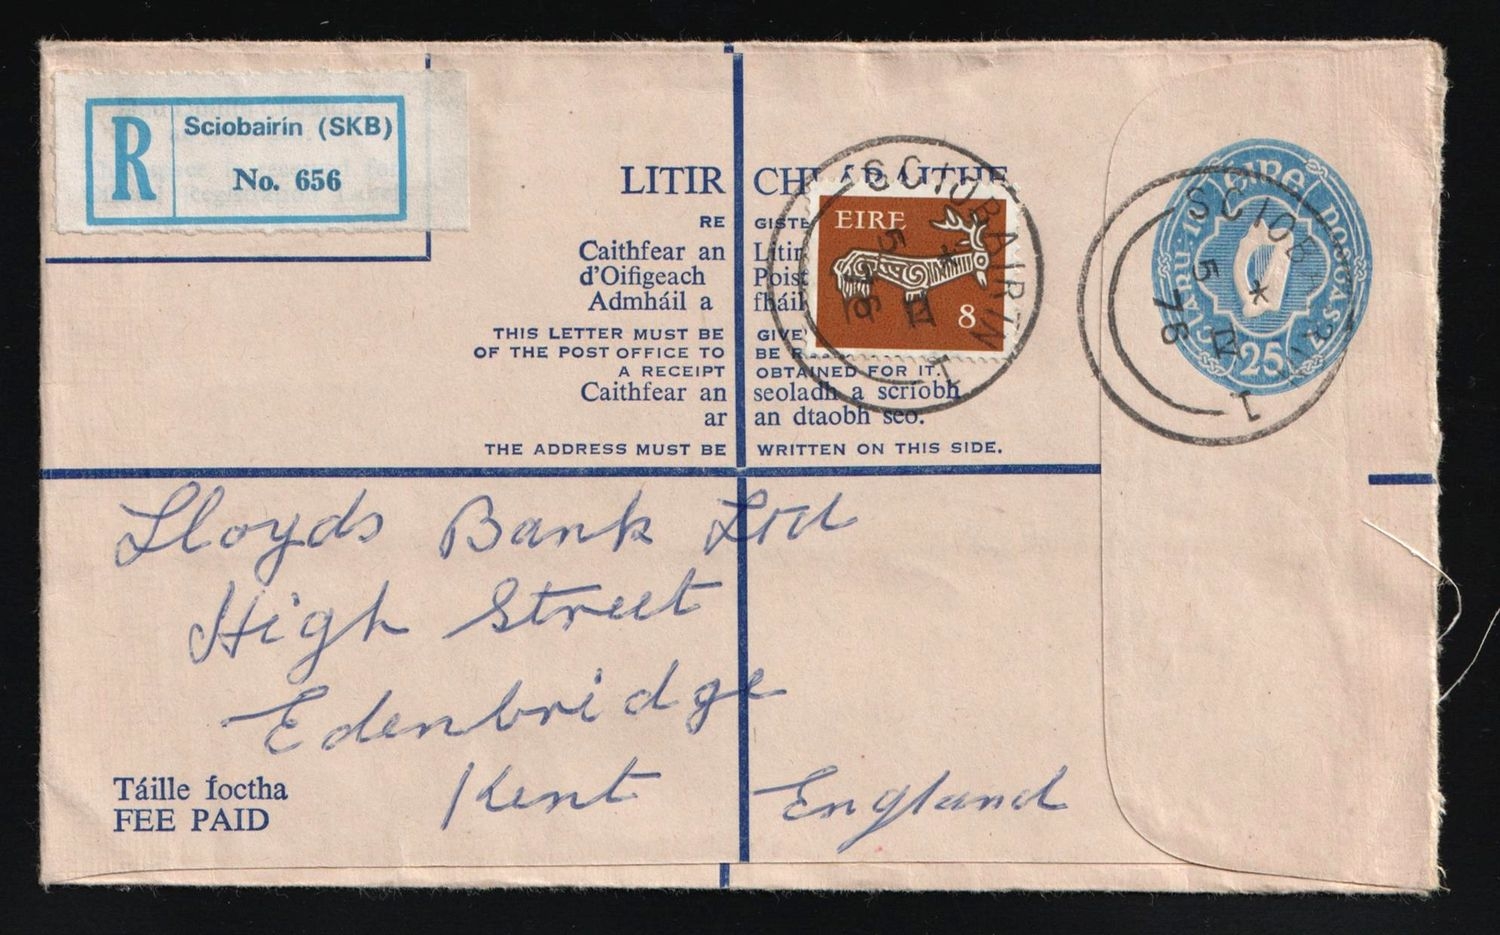 Sciobairín (SKB)
R
No. 656
LITIR CH
RE GISTE
Caithfear an Litir
d'Oifigeach Poist
Admháil a fháil
THIS LETTER MUST BE GIVE
OF THE POST OFFICE TO BE
A RECEIPT OBTAINED FOR IT.
Caithfear an seoladh a scríobh
ar an dtaobh seo.
THE ADDRESS MUST BE WRITTEN ON THIS SIDE.
EIRE
8
SCIOBAIRIN
5 IV 76
1
éire
postas
25
SCIOBAIRIN
5 IV 76
1
Lloyds Bank Ltd
High Street
Edenbridge
Kent England
Táille íoctha
FEE PAID